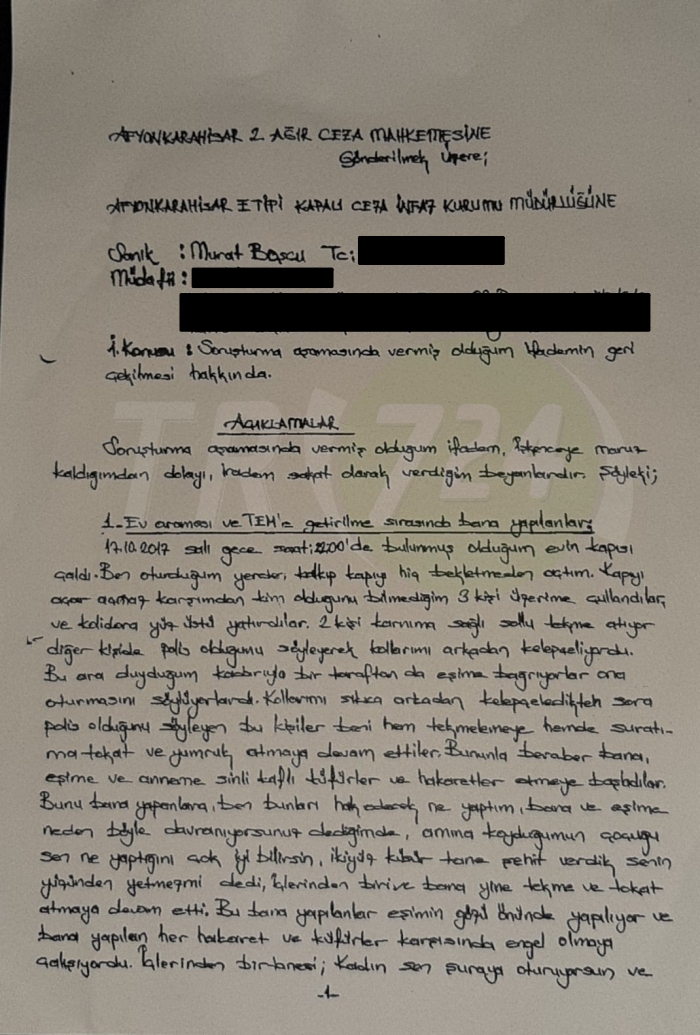 AFYONKARAHİSAR 2. AĞIR CEZA MAHKEMESİNE
Gönderilmek Üzere;
AFYONKARAHİSAR E TİPİ KAPALI CEZA İNFAZ KURUMU MÜDÜRLÜĞÜNE
Sanık : Murat Başcu Tc:
Müdafii :
İ.Konusu : Soruşturma aşamasında vermiş olduğum ifademin geri
çekilmesi hakkında.
AÇIKLAMALAR
TR724
Soruşturma aşamasında vermiş olduğum ifadem, işkenceye maruz
kaldığımdan dolayı, iradem sakat olarak verdiğim beyanlardır. Şöyleki;
1- Ev araması ve TEM'e getirilme sırasında bana yapılanlar;
17.10.2017 salı gece saat: 22:00'de bulunmuş olduğum evin kapısı
çaldı. Ben oturduğum yerden, kalkıp kapıyı hiç bekletmeden açtım. Kapıyı
açar açmaz karşımdan kim olduğunu bilmediğim 3 kişi üzerime çullandılar,
ve koridora yüz üstü yatırdılar. 2 kişi karnıma sağlı sollu tekme atıyor
diğer kişide polis olduğunu söyleyerek kollarımı arkadan kelepçeliyordu.
Bu ara duyduğum kadarıyla bir taraftan da eşime bağrıyorlar ona
oturmasını söylüyorlardı. Kollarımı sıkıca arkadan kelepçeledikten sora
polis olduğunu söyleyen bu kişiler beni hem tekmelemeye hemde suratı-
ma tokat ve yumruk atmaya devam ettiler. Bununla beraber bana,
eşime ve anneme sinli kaflı küfürler ve hakaretler etmeye başladılar.
Bunu bana yapanlara, ben bunları hak edecek ne yaptım, bana ve eşime
neden böyle davranıyorsunuz dediğimde, amına koyduğumun çocuğu
sen ne yaptığını çok iyi bilirsin, ikiyüz küsür tane şehit verdik senin
yüzünden yetmezmi dedi, içlerinden birive bana yine tekme ve tokat
atmaya devam etti. Bu bana yapılanlar eşimin gözü önünde yapılıyor ve
bana yapılan her hakaret ve küfürler karşısında engel olmaya
çalışıyordu. İçlerinden bir tanesi; Kadın sen şuraya oturuyorsun ve
-1-